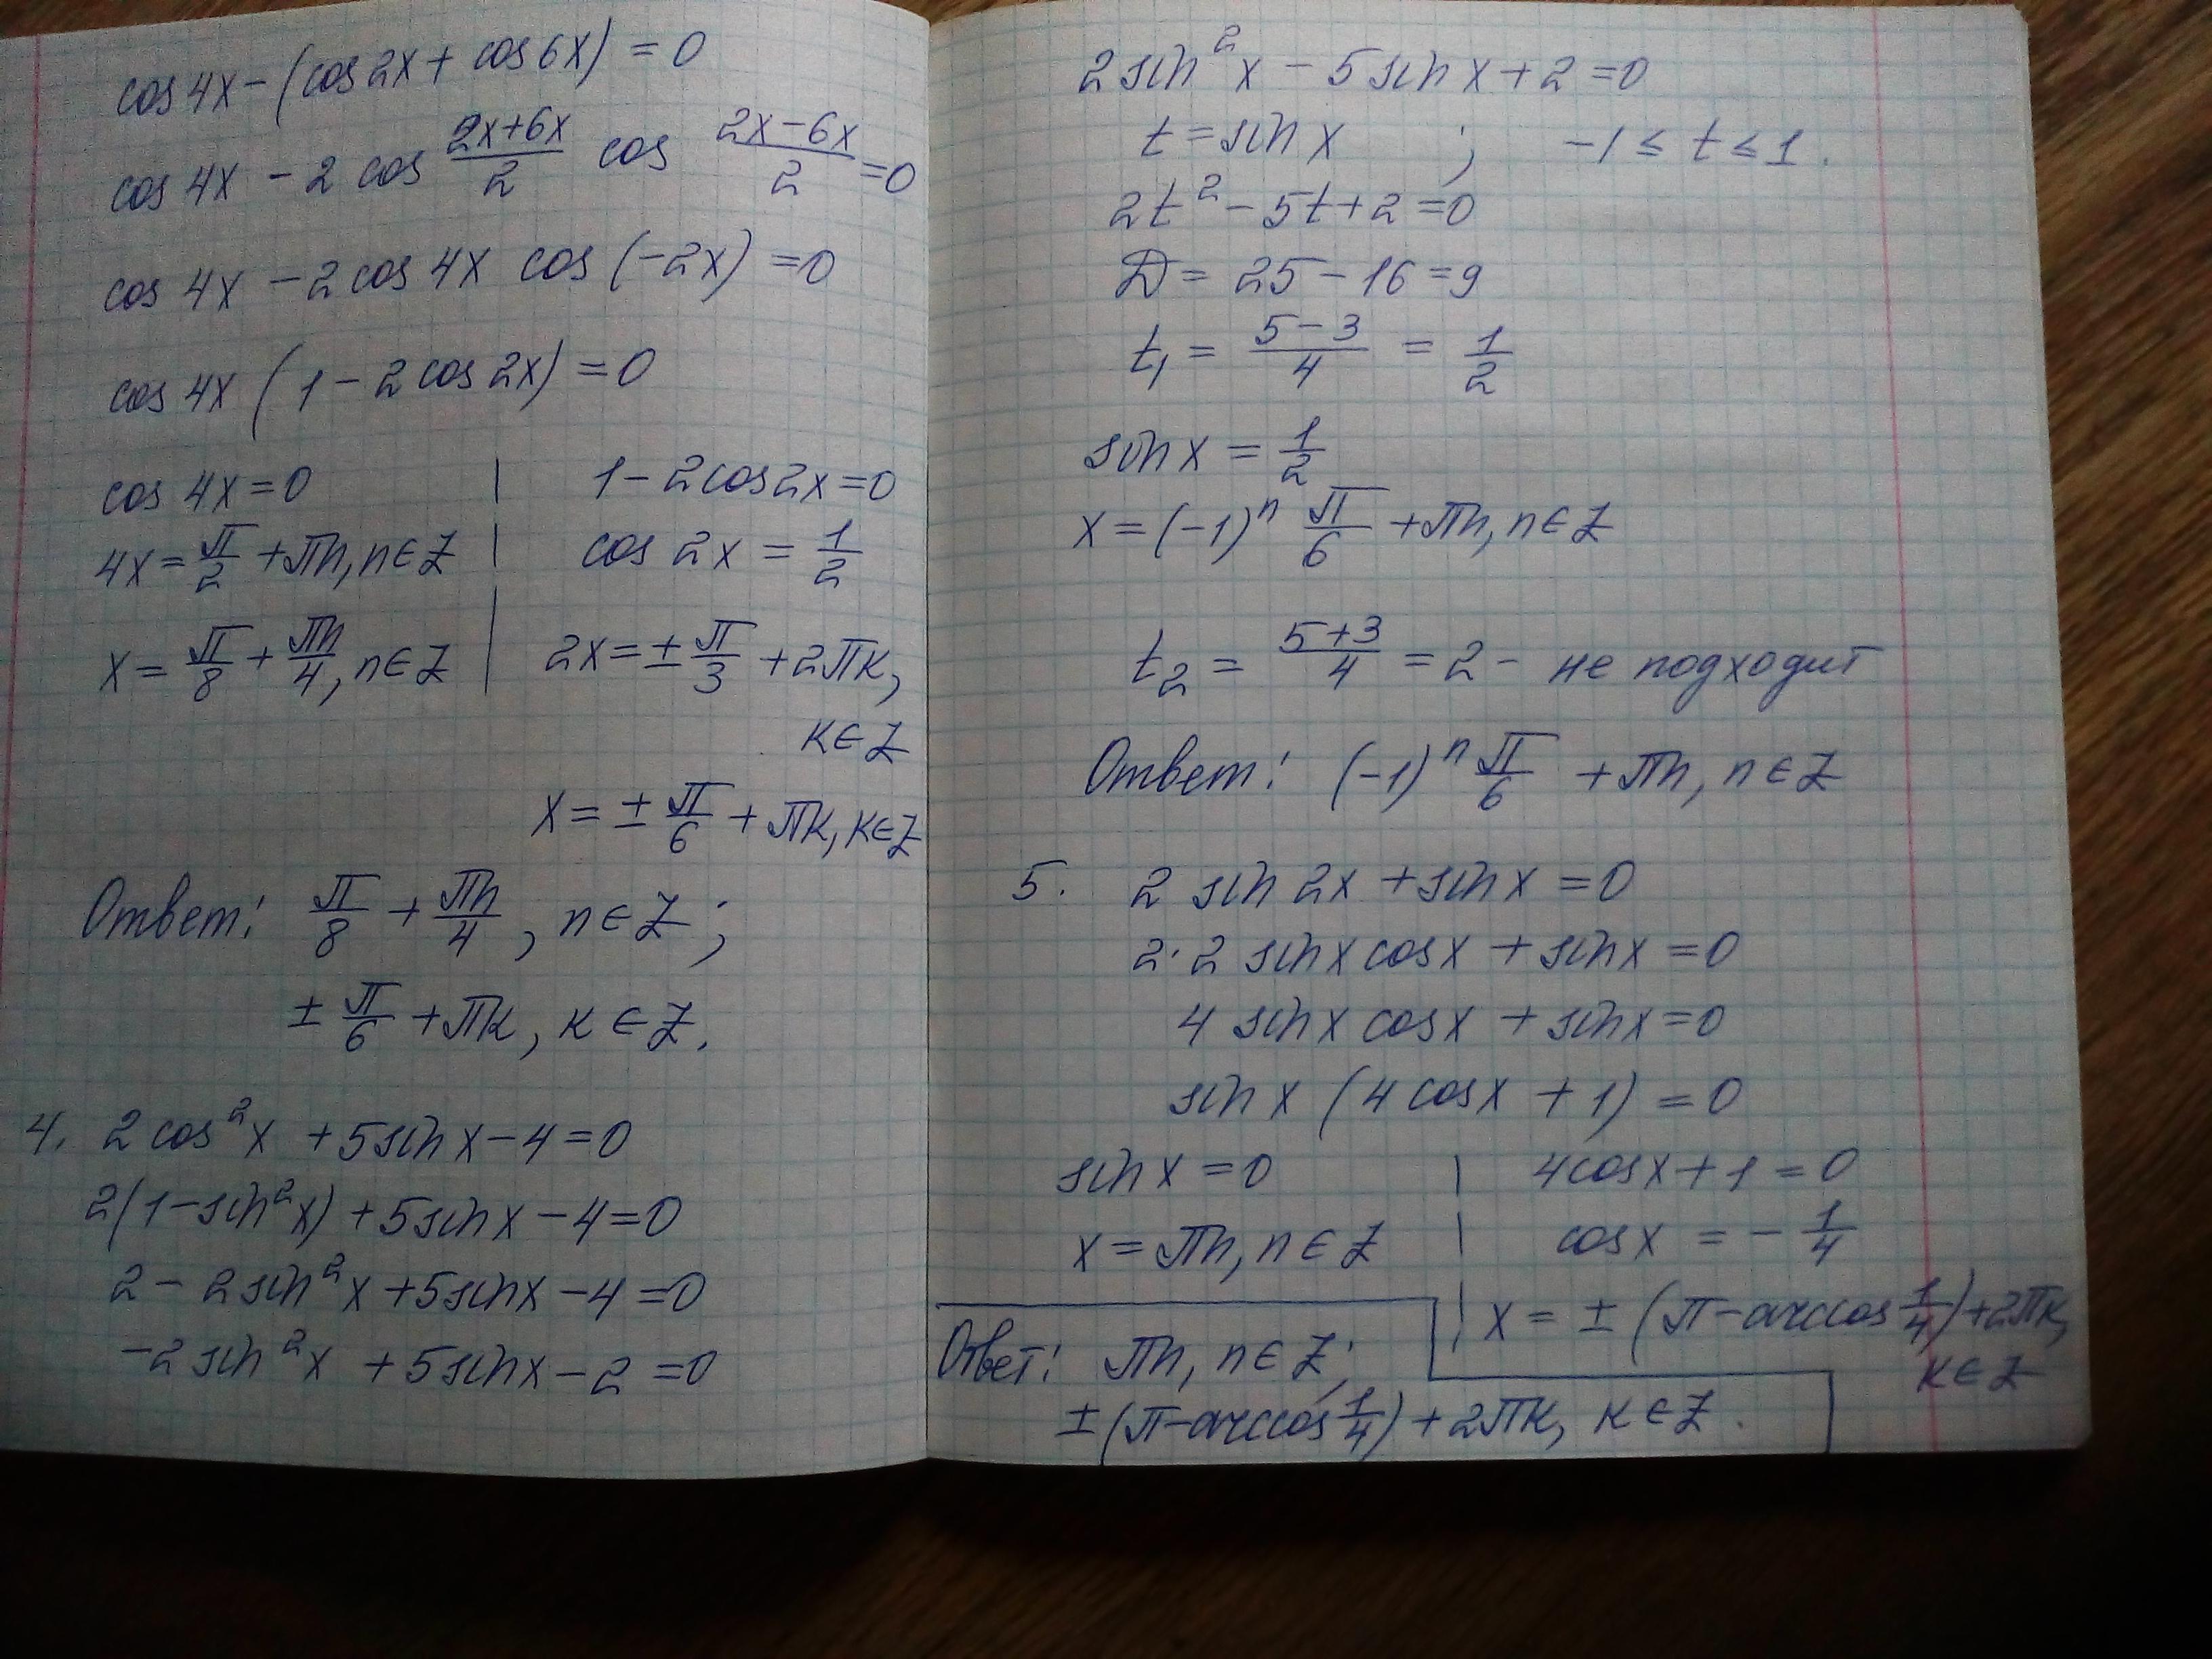 cos 4x - (cos 2x + cos 6x) = 0
cos 4x - 2 cos (2x+6x)/2 cos (2x-6x)/2 = 0
cos 4x - 2 cos 4x cos (-2x) = 0
cos 4x (1 - 2 cos 2x) = 0
cos 4x = 0 | 1 - 2cos2x = 0
4x = π/2 + πn, n∈Z | cos 2x = 1/2
x = π/8 + πn/4, n∈Z | 2x = ± π/3 + 2πк,
к∈Z
x = ± π/6 + πк, к∈Z
Ответ: π/8 + πn/4, n∈Z;
± π/6 + πк, к∈Z.
4. 2 cos²x + 5 sin x - 4 = 0
2(1 - sin²x) + 5 sin x - 4 = 0
2 - 2 sin²x + 5 sin x - 4 = 0
-2 sin²x + 5 sin x - 2 = 0
2 sin²x - 5 sin x + 2 = 0
t = sin x ; -1 ≤ t ≤ 1.
2t² - 5t + 2 = 0
D = 25 - 16 = 9
t₁ = (5-3)/4 = 1/2
sin x = 1/2
x = (-1)ⁿ π/6 + πn, n∈Z
t₂ = (5+3)/4 = 2 - не подходит
Ответ: (-1)ⁿ π/6 + πn, n∈Z
5. 2 sin 2x + sin x = 0
2·2 sin x cos x + sin x = 0
4 sin x cos x + sin x = 0
sin x (4 cos x + 1) = 0
sin x = 0 | 4cos x + 1 = 0
x = πn, n∈Z | cos x = - 1/4
| x = ± (π - arccos 1/4) + 2πк,
к∈Z
Ответ: πn, n∈Z;
± (π - arccos 1/4) + 2πк, к∈Z.